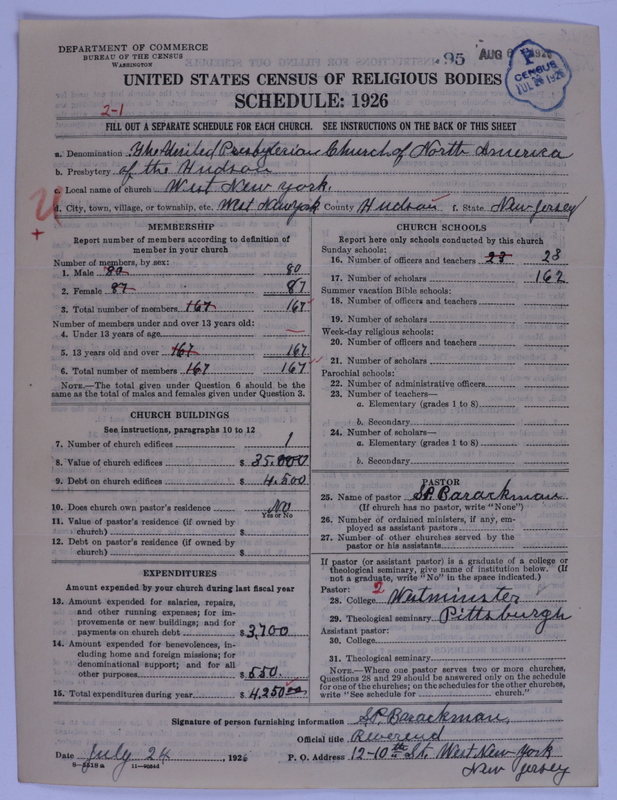 DEPARTMENT OF COMMERCE
BUREAU OF THE CENSUS
WASHINGTON
95 AUG 6 1926
P
CENSUS
JUL 26 1926
UNITED STATES CENSUS OF RELIGIOUS BODIES
SCHEDULE: 1926
2-1
FILL OUT A SEPARATE SCHEDULE FOR EACH CHURCH. SEE INSTRUCTIONS ON THE BACK OF THIS SHEET
a. Denomination The United Presbyterian Church of North America
b. Presbytery of the Hudson
c. Local name of church West New York.
d. City, town, village, or township, etc. West New York County Hudson f. State New Jersey
MEMBERSHIP
Report number of members according to definition of
member in your church
Number of members, by sex:
1. Male 80 80
2. Female 87 87
3. Total number of members 167 167
Number of members under and over 13 years old:
4. Under 13 years of age —
5. 13 years old and over 167 167
6. Total number of members 167 167
NOTE.—The total given under Question 6 should be
same as the total of males and females given under Question 3.
CHURCH BUILDINGS
See instructions, paragraphs 10 to 12
7. Number of church edifices 1
8. Value of church edifices $ 35.000
9. Debt on church edifices $ 4.500
10. Does church own pastor's residence No
Yes or No
11. Value of pastor's residence (if owned by
church) $
12. Debt on pastor's residence (if owned by
church) $
EXPENDITURES
Amount expended by your church during last fiscal year
13. Amount expended for salaries, repairs,
and other running expenses; for im-
provements or new buildings; and for
payments on church debt $ 3,700
14. Amount expended for benevolences, in-
cluding home and foreign missions; for
denominational support; and for all
other purposes $ 550.
15. Total expenditures during year $ 4,250 00
CHURCH SCHOOLS
Report here only schools conducted by this church
Sunday schools:
16. Number of officers and teachers 23 23
17. Number of scholars 162
Summer vacation Bible schools:
18. Number of officers and teachers
19. Number of scholars
Week-day religious schools:
20. Number of officers and teachers
21. Number of scholars
Parochial schools:
22. Number of administrative officers
23. Number of teachers—
a. Elementary (grades 1 to 8)
b. Secondary
24. Number of scholars—
a. Elementary (grades 1 to 8)
b. Secondary
PASTOR
25. Name of pastor S.P. Barackman
(If church has no pastor, write "None")
26. Number of ordained ministers, if any, em-
ployed as assistant pastors
27. Number of other churches served by the
pastor or his assistants
If pastor (or assistant pastor) is a graduate of a college or
theological seminary, give name of institution below. (If
not a graduate, write "No" in the space indicated.)
Pastor: 2
28. College Westminster
29. Theological seminary Pittsburgh
Assistant pastor:
30. College
31. Theological seminary
NOTE.—Where one pastor serves two or more churches,
Questions 28 and 29 should be answered only on the schedule
for one of the churches; on the schedules for the other churches,
write "See schedule for church."
Signature of person furnishing information S.P. Barackman,
Official title Reverend
Date July 24, 1926 P. O. Address 12-10th St. West New York
New Jersey
8-5518a